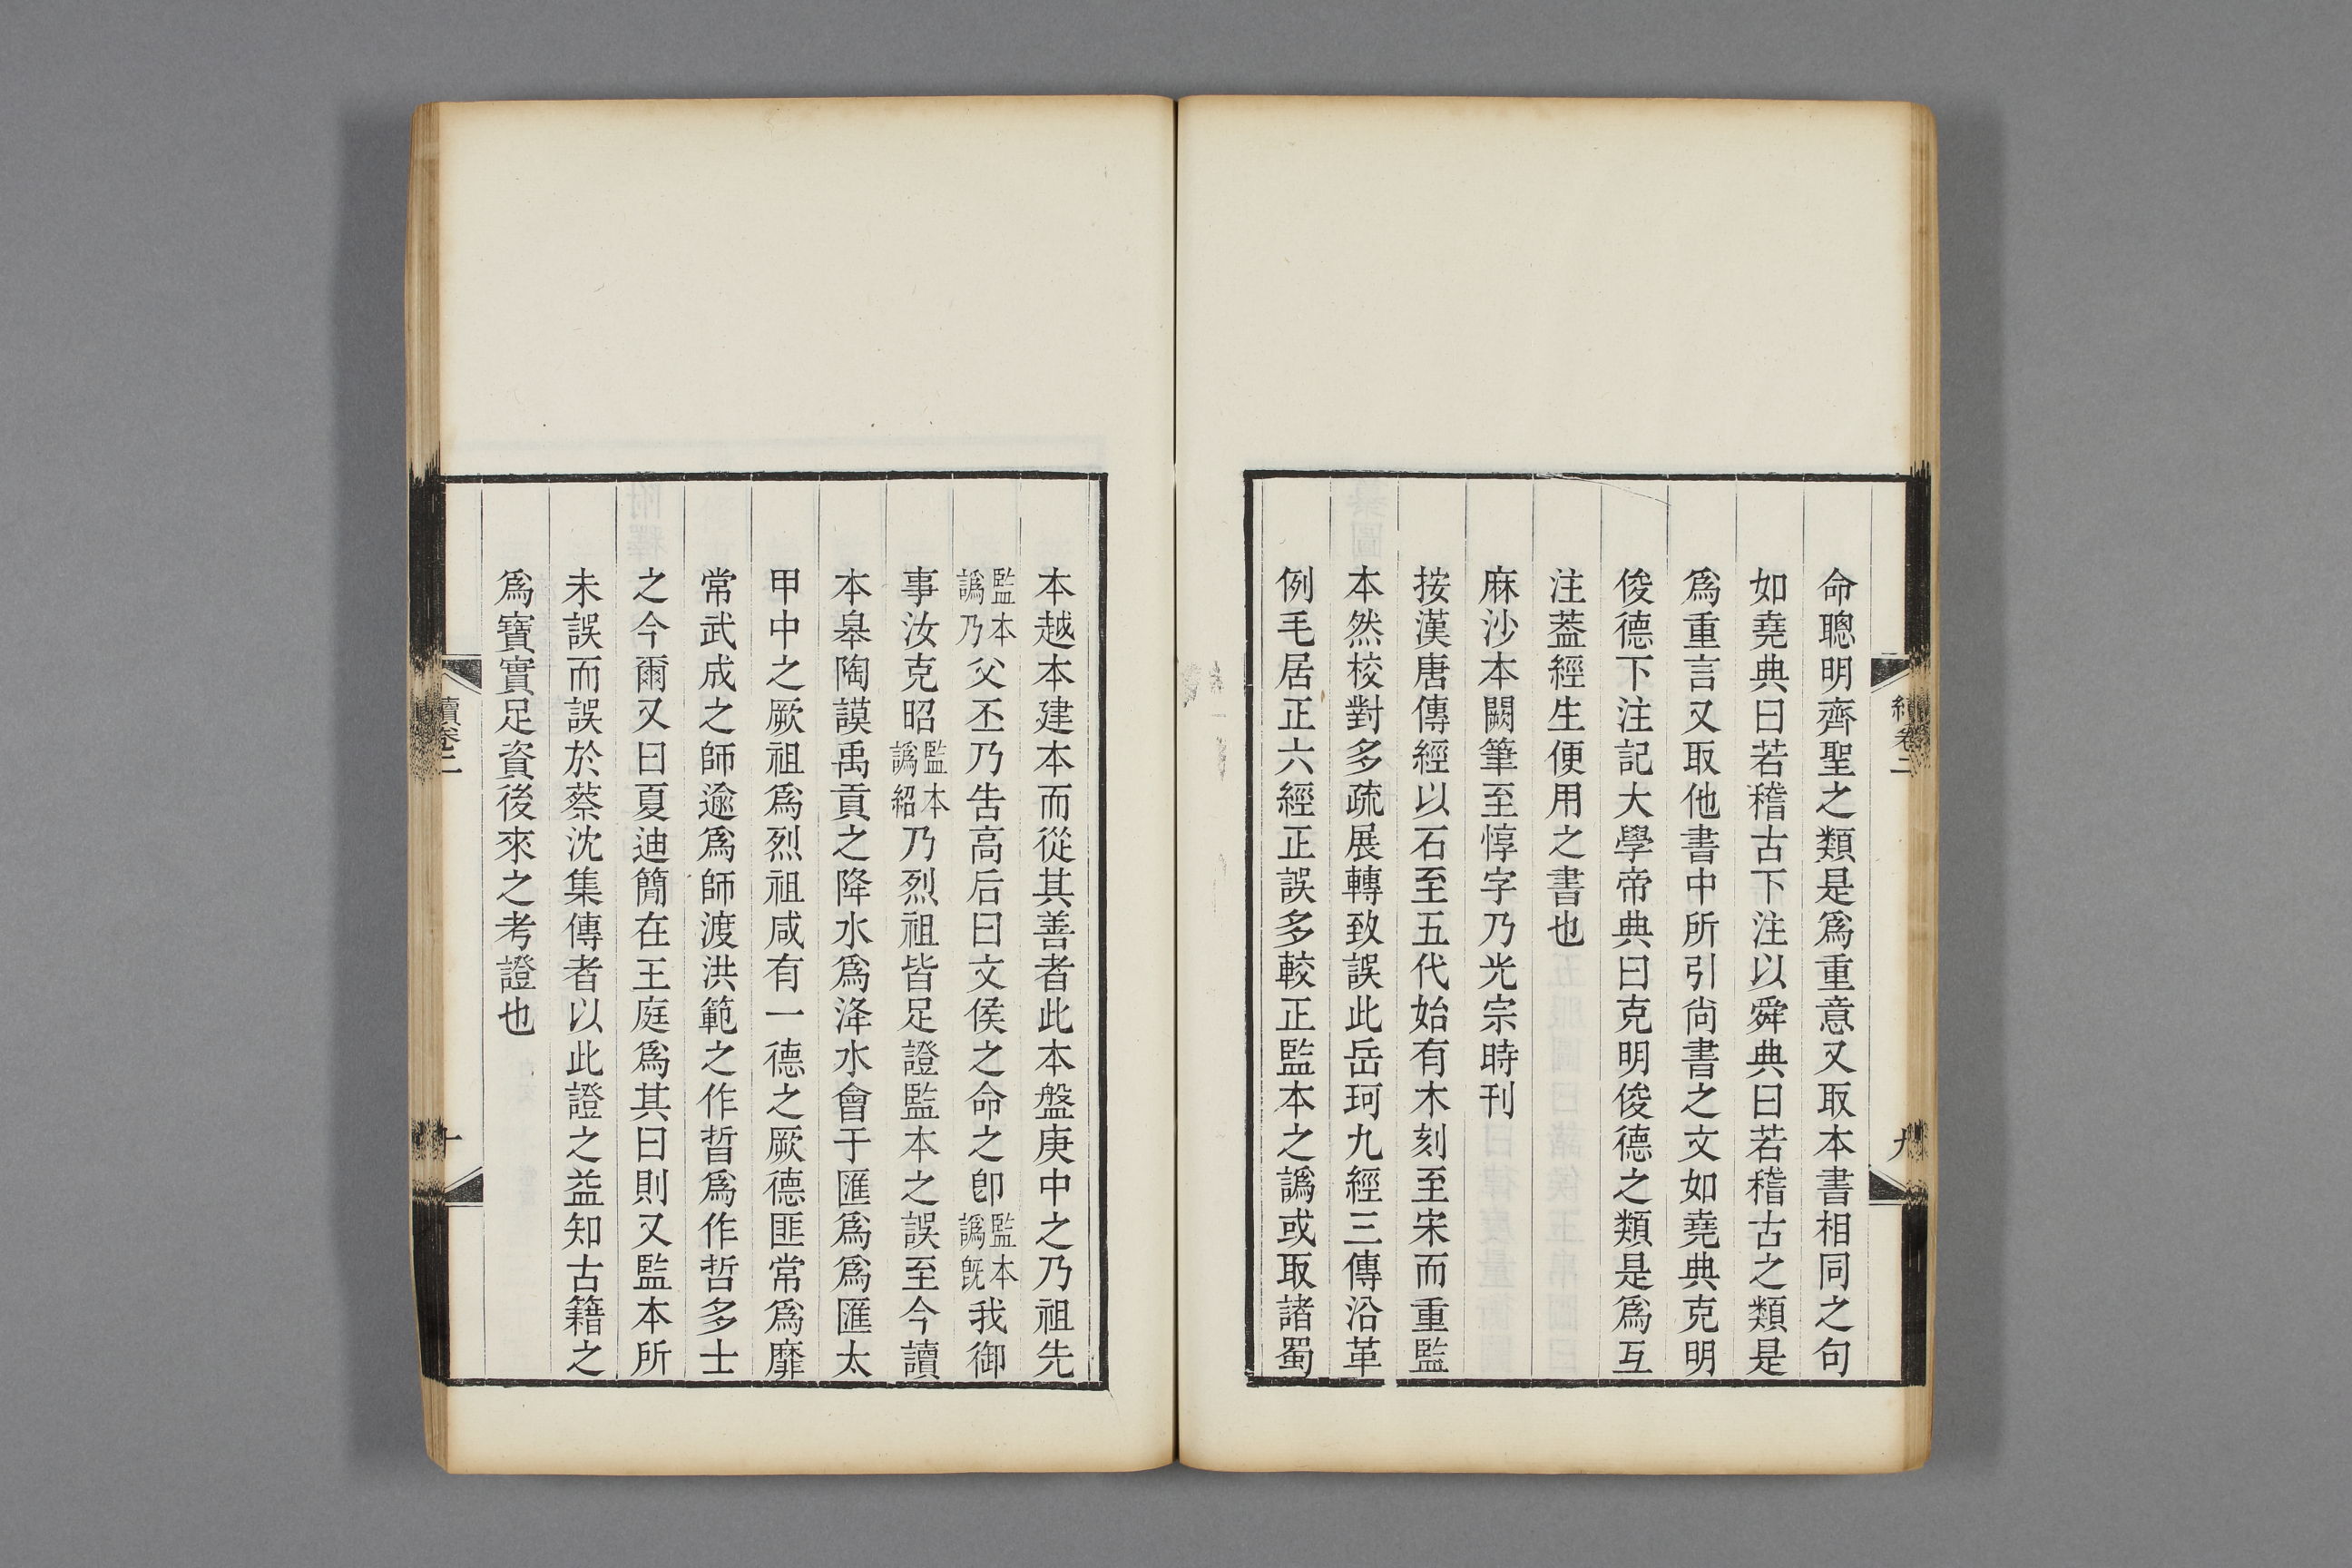 命聰明齊聖之類是爲重意又取本書相同之句
如堯典曰若稽古下注以舜典曰若稽古之類是
爲重言又取他書中所引尙書之文如堯典克明
俊德下注記大學帝典曰克明俊德之類是爲互
注葢經生便用之書也
麻沙本闕筆至惇字乃光宗時刊
按漢唐傳經以石至五代始有木刻至宋而重監
本然校對多疏展轉致誤此岳珂九經三傳沿革
例毛居正六經正誤多較正監本之譌或取諸蜀
本越本建本而從其善者此本盤庚中之乃祖先
監本譌乃父丕乃吿高后曰文侯之命之卽監本譌旣我御
事汝克昭監本譌紹乃烈祖皆足證監本之誤至今讀
本皋陶謨禹貢之降水爲洚水會于匯爲爲匯太
甲中之厥祖爲烈祖咸有一德之厥德匪常爲靡
常武成之師逾爲師渡洪範之作晢爲作哲多士
之今爾又曰夏迪簡在王庭爲其曰則又監本所
未誤而誤於蔡沈集傳者以此證之益知古籍之
爲寶實足資後來之考證也
續卷二
九
續卷二
十